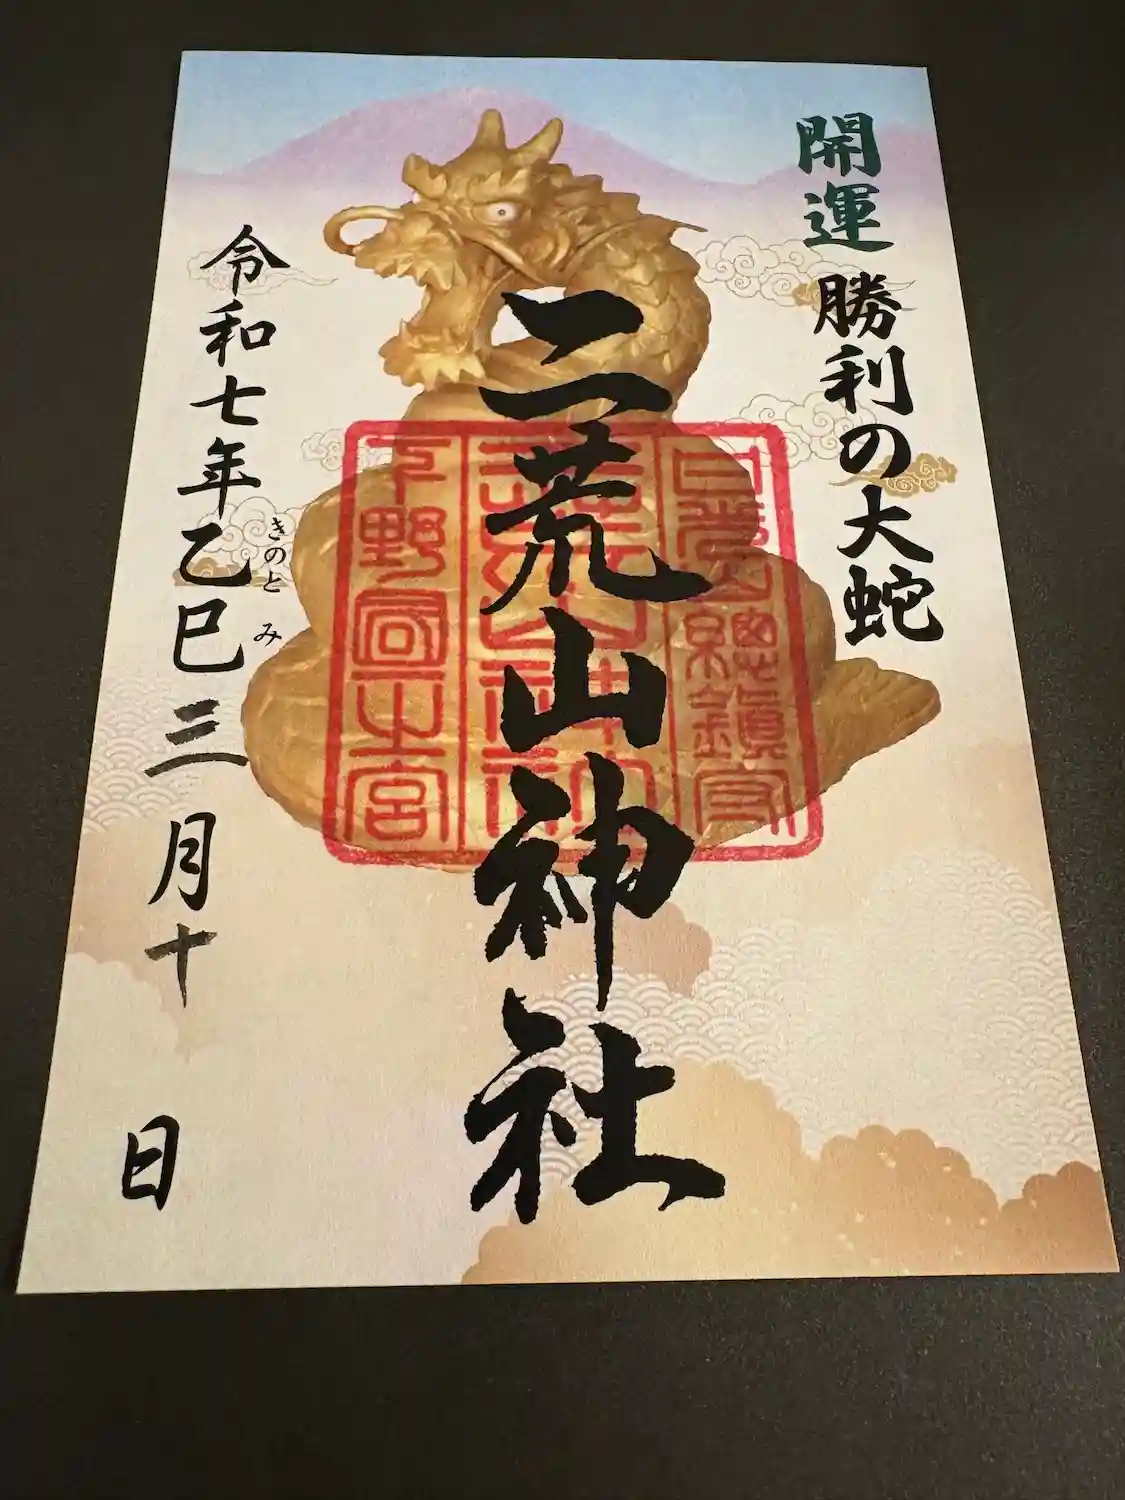 開運 勝利の大蛇
二荒山神社
日光総鎮守
二荒山神社
下野國一之宮
令和七年乙巳三月十 日
きのと み